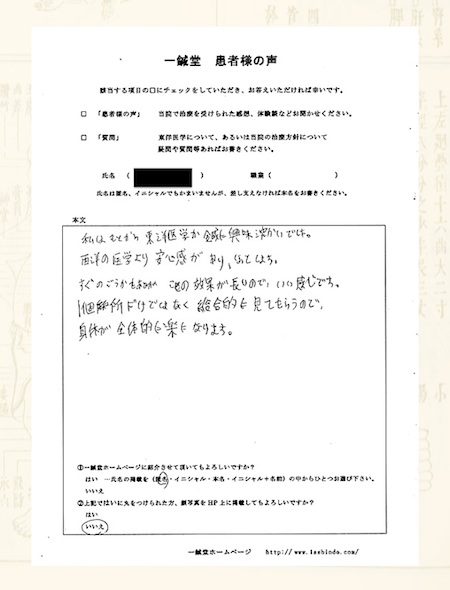 一鍼堂 患者様の声
該当する項目の口にチェックをしていただき、お答えいただければ幸いです。
□ 「患者様の声」 当院で治療を受けられた感想、体験談などお聞かせください。
□ 「質問」 東洋医学について、あるいは当院の治療方針について
疑問や質問等あればお書きください。
氏名 ( ) 職業 ( )
氏名は匿名、イニシャルでもかまいませんが、差し支えなければ本名をお書きください。
本文
私はもとから東洋医学か鍼に興味深かいでは。
西洋の医学より安心感があり、
の効果が長いので、いい感じです。
1個所だけではなく総合的に見てもらうので、
身体が全体的に楽になります。
①一鍼堂ホームページに紹介させて頂いてもよろしいですか？
はい →氏名の掲載を（匿名・イニシャル・本名・イニシャル＋名前）の中からひとつお選び下さい。
いいえ
②上記ではいに丸をつけられた方、顔写真をHP上に掲載してもよろしいですか？
はい
いいえ
一鍼堂ホームページ http://www.1sshindo.com/